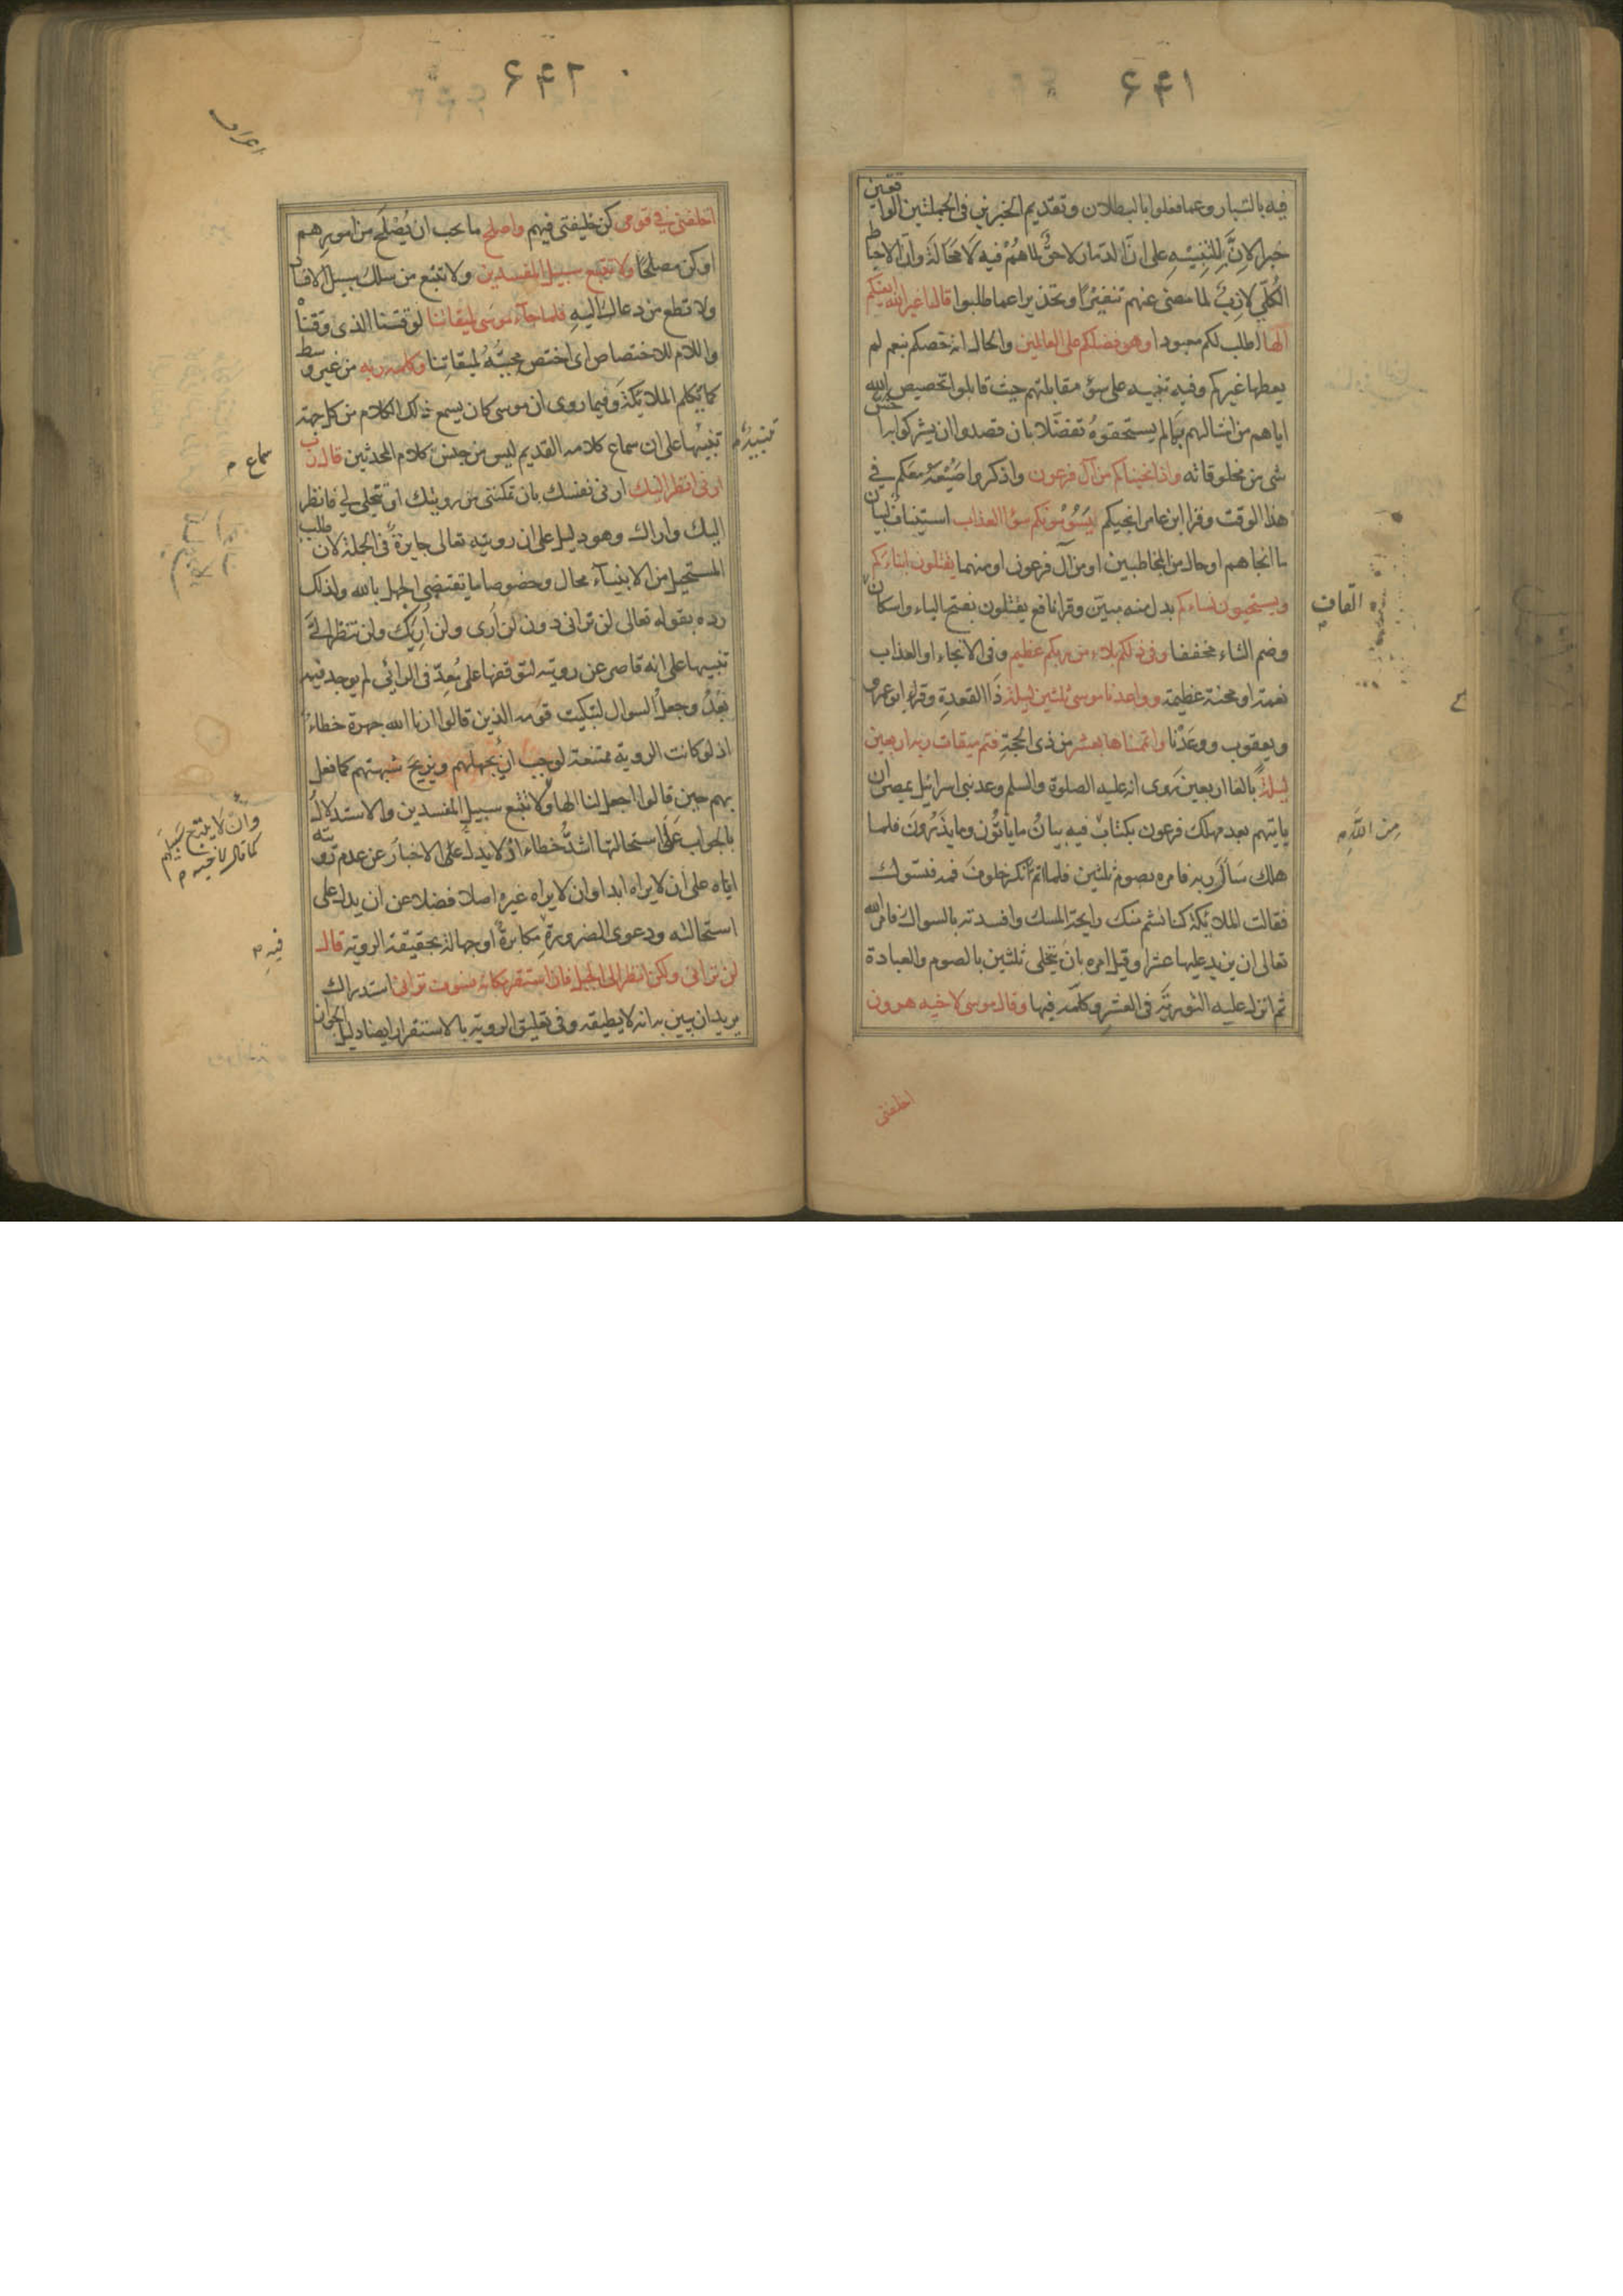 ۶۴۱
فيه بالتبار وعما فعلوا بالبطلان وتقديم الخبرين في الجملتين الواقعتين
خبرا لانّ للتنبيه على ان الدمار لاحق لما هم فيه لا محالة وان الاحباط
الكلي لازب لما مضى عنهم تنفيرا وتحذيرا عما طلبوا قال اغير الله ابغيكم
الها اطلب لكم معبودا وهو فضلكم على العالمين والحال انه خصكم بنعم لم
يعطها غيركم وفيه تنبيه على سوء مقابلتهم حيث قابلوا تخصيص الله
اياهم من امثالهم بما لم يستحقوه تفضلا بان قصدوا ان يشركوا به اخس
شئ من مخلوقاته واذ انجيناكم من آل فرعون واذكروا صنيعه معكم في
هذا الوقت وقرا ابن عامر انجيكم يسومونكم سوء العذاب استيناف لبيان
ما انجاهم او حال من المخاطبين او من آل فرعون او منهما يقتلون ابناءكم
ويستحيون نساءكم بدل منه مبين وقرا نافع يقتلون بفتح الياء واسكان
القاف
وضم التاء مخففا وفي ذلكم بلاء من ربكم عظيم وفي الانجاء او العذاب
نعمة او محنة عظيمة وواعدنا موسى ثلثين ليلة ذا القعدة وقرا ابو عمرو
ويعقوب ووعدنا واتممناها بعشر من ذي الحجة فتم ميقات ربه اربعين
ليلة بالغا اربعين روى انه عليه الصلوة والسلم وعد بني اسرائيل بمصر ان
ياتيهم بعد مهلك فرعون بكتاب فيه بيان ما ياتون وما يذرون فلما
من الله
هلك سأل ربه فامره بصوم ثلثين فلما اتم انكر خلوف فمه فتسوك
فقالت الملائكة كنا نشم منك رايحة المسك وافسدته بالسواك فامر الله
تعالى ان يزيد عليها عشرا وقيل امره بان يتخلى ثلثين بالصوم والعبادة
ثم انزل عليه التورية في العشر وكلمه فيها وقال موسى لاخيه هرون
اخلفني
۶۴۲
اعراف
اخلفني في قومي كن خليفتي فيهم واصلح ما يجب ان يصلح من امورهم
او كن مصلحا ولا تتبع سبيل المفسدين ولا تتبع من سلك سبيل الافساد
ولا تطع من دعاك اليه فلما جاء موسى لميقاتنا لوقتنا الذي وقتنا
واللام للاختصاص اي اختص مجيئه لميقاتنا وكلمه ربه من غير وسط
كما يكلم الملائكة وفيما روى ان موسى كان يسمع ذلك الكلام من كل جهة
تنبيه
تنبيها على ان سماع كلامه القديم ليس من جنس كلام المحدثين قال رب
سماع
ارني انظر اليك ارني نفسك بان تمكنني من رويتك او تتجلى لي فانظر
اليك واراك وهو دليل على ان رويته تعالى جايزة في الجملة لان طلب
المستحيل من الانبياء محال وخصوصا ما يقتضي الجهل بالله ولذلك
رده بقوله تعالى لن تراني دون لن ارى ولن اريك ولن تنظر الي
تنبيها على انه قاصر عن رويته لتوقفها على معد في الرائي لم يوجد فيه
بعد وجعل السوال لتبكيت قومه الذين قالوا ارنا الله جهرة خطاء
اذ لو كانت الروية ممتنعة لوجب ان يجهلهم ويزيح شبهتهم كما فعل
بهم حين قالوا اجعل لنا الها ولا تتبع سبيل المفسدين والاستدلال
وان لا يتبع سبيلهم
كما قال لاخيه
بالجواب على استحالتها اشد خطاء اذ لا يدل على الاخبار عن عدم رويته
اياه على ان لا يراه ابدا وان لا يراه غيره اصلا فضلا عن ان يدل على
استحالته ودعوى الضرورة مكابرة او جهالة بحقيقة الروية قال
فيه
لن تراني ولكن انظر الى الجبل فان استقر مكانه فسوف تراني استدراك
يريد ان يبين به انه لا يطيقه وفي تعليق الروية بالاستقرار ايضا دليل الجواز